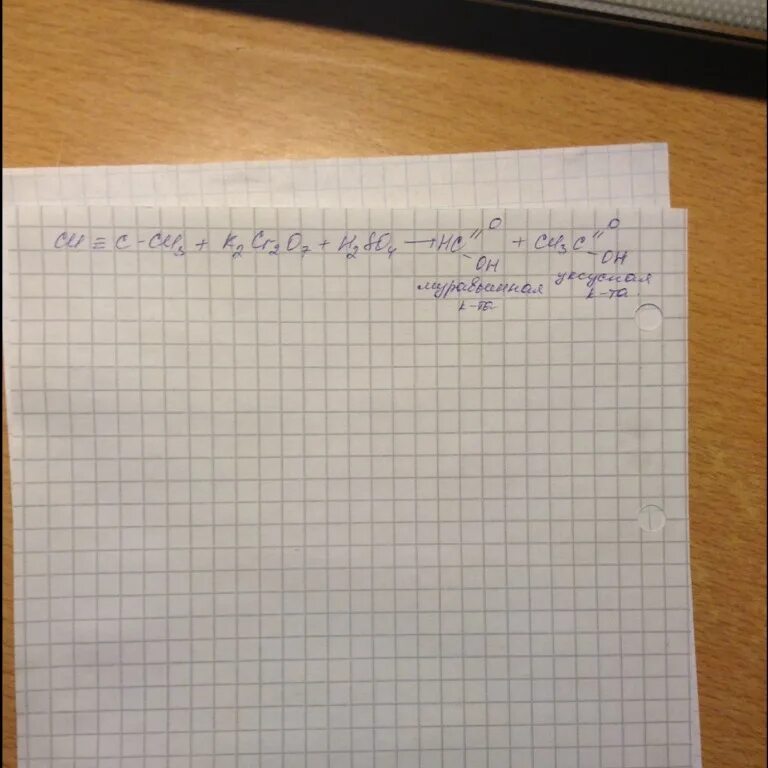 CH ≡ C - CH₃ + K₂Cr₂O₇ + H₂SO₄ → HC=O-OH + CH₃C=O-OH
муравьинная к-та
уксусная к-та.